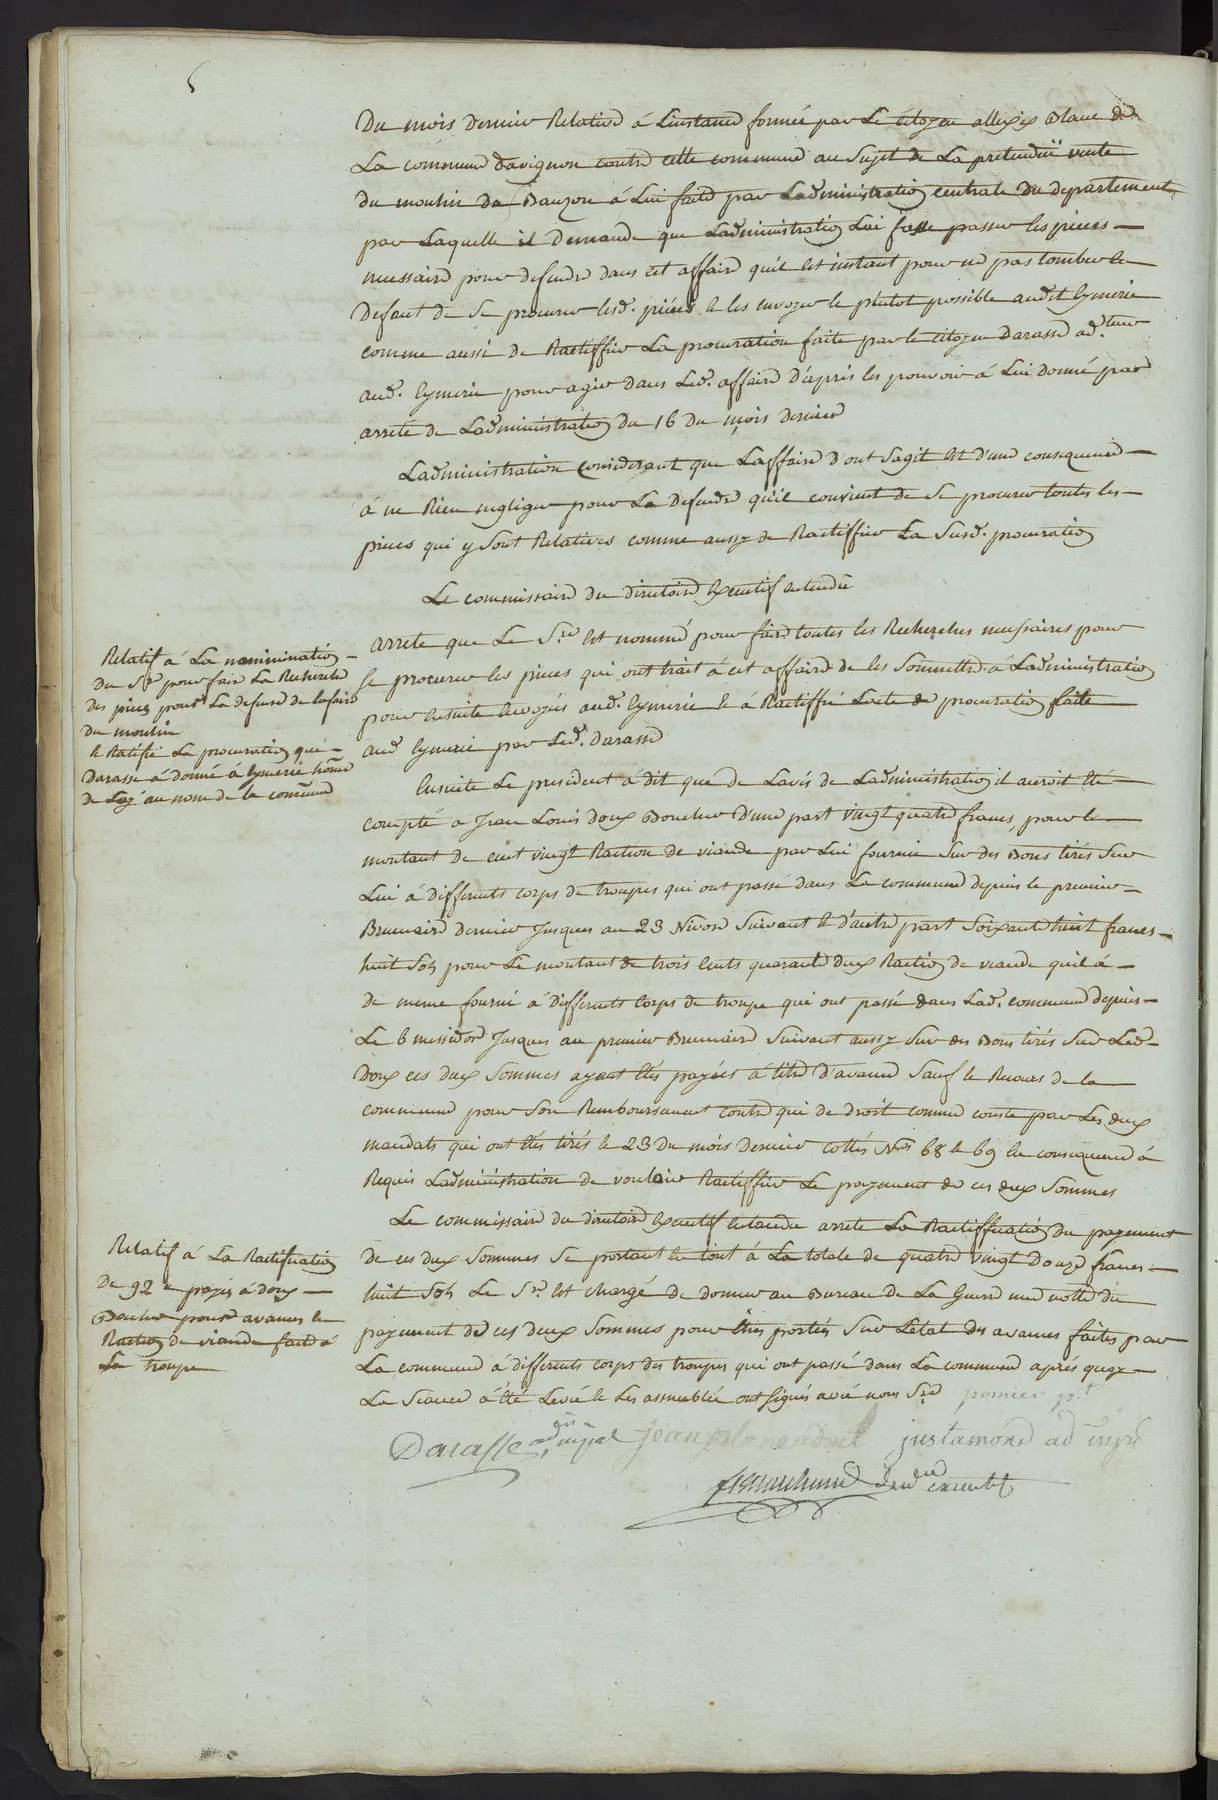 Du mois dernier Relative á Linstance formée par Le Citoyen allexix Blanc de
La commune davignon contre cette commune au Sujet de La pretenduë vente
du moulin de Bauzon á Lui faite par Ladministration centrale du departement
par Laquelle il demande que Ladministration Lui fasse passer les pieces
necessaire pour defendre dans cet affaire quil est instant pour ne pas tomber en
defaut de Se procurer lesd. pieces & les envoyer le plutot possible audit Eymerie
comme aussi de Ractiffier La procuration faite par le citoyen Darasse ad.teur
aud. Eymerie pour agir dans Led. affaire d'après les pouvoir á Lui donné par
arreté de Ladministration du 16 du mois dernier
Ladministration considerant que Laffaire d'ont Sagit est d'une consequence
á ne Rien negliger pour La defendre quil convient de Se procurer toutes les
pieces qui y Sont Relatives comme aussy de Ractiffier La Susd. procuration
Le commissaire du directoire Executif entendu
arrete que Le S.re est nommé pour faire toutes les Recherches necessaires pour
Se procurer les pieces qui ont trait á cet affaire de les Soumettre á Ladministration
pour ensuite Envoyés aud. Eymerie & á Ractiffié Lacte de procuration faite
aud Eymerie par Led. Darasse
Relatif á La nominination
du S.re pour faire La Recherche
des pieces pour La defense de lafaire
du moulin
& Ratifié La procuration que
Darasse á donné á Eymerie homme
de Loy au nom de la commune
Ensuite Le president á dit que de Lavis de Ladministration il auroit été
compté a Jean Louis Doux Boucher D'une part vingt quatre francs, pour le
montant de cent vingt Raction de viande par Lui fournie Sur des Bons tirés Sur
Lui á differents corps de troupes qui ont passé dans La commune depuis le premier
Brumaire dernier Jusques au 23 Nivose Suivant & d'autre part Soixante huit francs
huit Sols pour Le montant de trois cents quarante deux Raction de viande quil á
de meme fourni á differents Corps de troupe qui ont passé dans Lad. commune depuis
Le 6 messidor Jusques au premier Brumaire Suivant aussy Sur des Bons tirés Sur Led
Doux ces deux Sommes ayant étés payées á titre d'avance Sauf le Recours de la
commune pour Son Remboursement contre qui de droit comme conste par Les deux
mandats qui ont étés tirés le 23 du mois dernier cottés N.os 68 & 69 En consequence á
Requis Ladministration de vouloir Ractiffier Le payement de ces deux Sommes
Le commissaire du directoire Executif entendu arrete La Ractiffication du payement
de ces deux Sommes Se portant en tout á La totale de quatre vingt Douze francs
huit Sols Le S.re est chargé de donner au Bureau de La Guerre une notte du
payement de ces deux Sommes pour être portées Sur L'etat des avances faites par
La commune á differents corps des troupes qui ont passé dans La commune aprés quoy
La Seance á été Levée & Les assemblée ont Signés avec nous S.re
Relatif á La Ractification
De 92 # payés á doux
Boucher pour avances en
Raction de viande faite á
La troupe
Darasse jean plane adm justamond ad